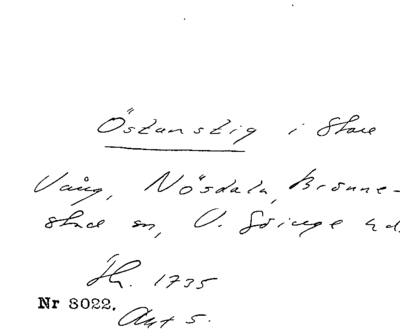 Östanstig i Stora
Vång, Nösdala, Brönne-
stad sn, V. Göinge hd.
Th. 1735
Nr 3022.
Akt 5.